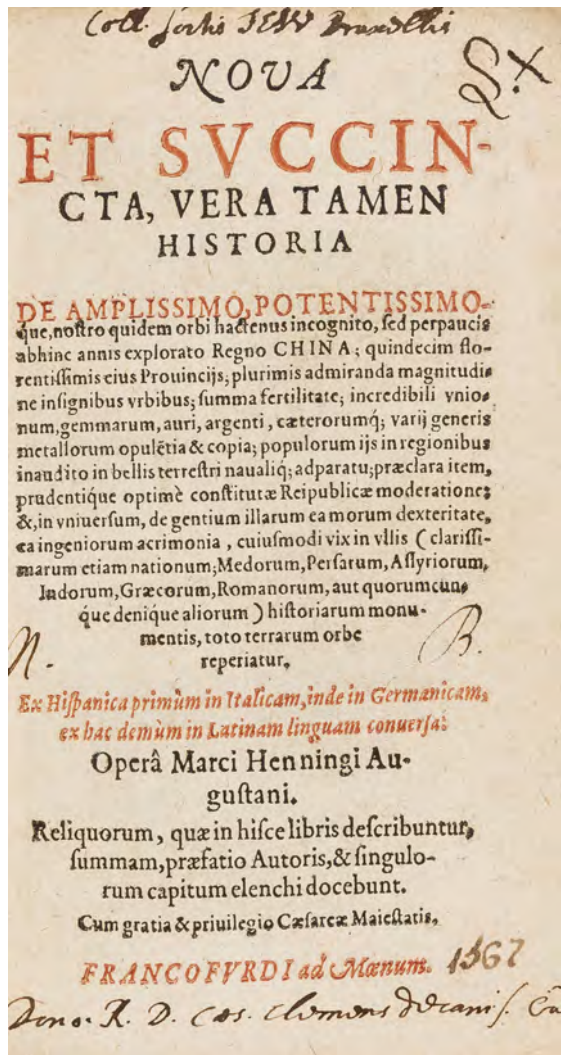 Coll. Socitis JESV Bruxellis
NOVA
ET SVCCIN-
CTA, VERA TAMEN
HISTORIA
DE AMPLISSIMO, POTENTISSIMO-
que, nostro quidem orbi hactenus incognito, sed perpaucis
abhinc annis explorato Regno CHINA; quindecim flo-
rentissimis eius Prouincijs; plurimis admiranda magnitudi-
ne insignibus vrbibus; summa fertilitate; incredibili vnio-
num, gemmarum, auri, argenti, cæterorumq́; varij generis
metallorum opulẽtia & copia; populorum ijs in regionibus
inaudito in bellis terrestri naualiq́; adparatu; præclara item,
prudentique optimè constitutæ Reipublicæ moderatione;
&, in vniuersum, de gentium illarum ea morum dexteritate,
ea ingeniorum acrimonia, cuiusmodi vix in vllis (clarissi-
marum etiam nationum; Medorum, Persarum, Assyriorum,
Indorum, Græcorum, Romanorum, aut quorumcun-
que denique aliorum) historiarum monu-
mentis, toto terrarum orbe
reperiatur.
N. B.
Ex Hispanica primùm in Italicam, inde in Germanicam,
ex hac demùm in Latinam linguam conuersa:
Operâ Marci Henningi Au-
gustani.
Reliquorum, quæ in hisce libris describuntur,
summam, præfatio Autoris, & singulo-
rum capitum elenchi docebunt.
Cum gratia & priuilegio Cæsareæ Maiestatis.
FRANCOFVRDI ad Mœnum. 1567
Dono. R. D.